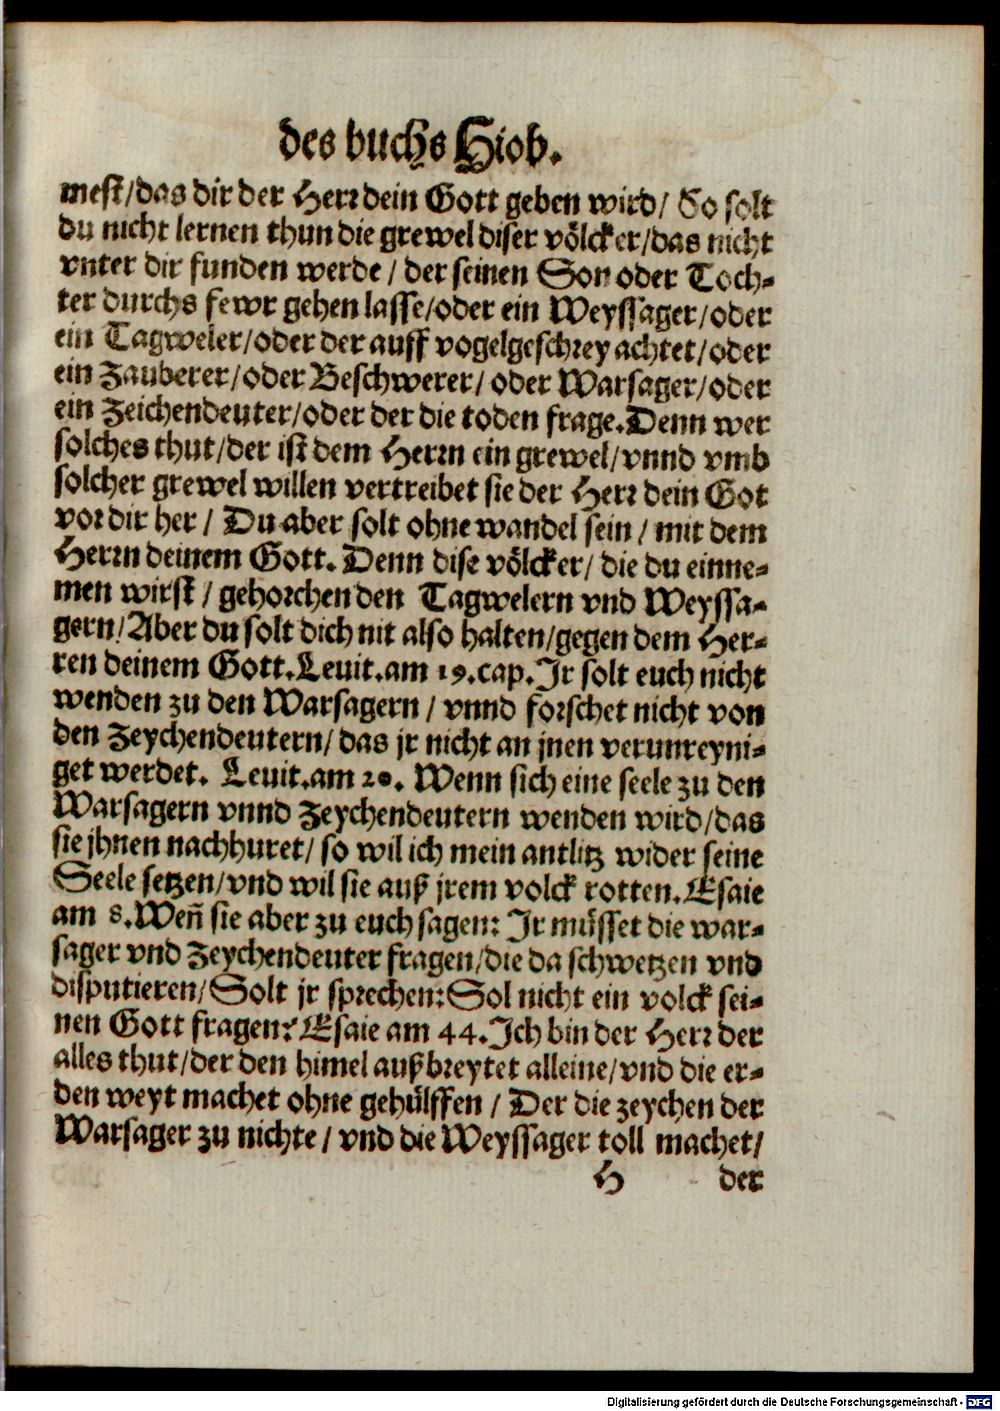 des buchs Hiob.
mest/das dir der Herr dein Gott geben wird/ So solt
du nicht lernen thun die grewel diser völcker/das nicht
vnter dir funden werde / der seinen Son oder Toch-
ter durchs fewr gehen lasse/oder ein Weyssager/oder
ein Tagweler/oder der auff vogelgeschrey achtet/oder
ein Zauberer/oder Beschwerer/ oder Warsager/oder
ein Zeichendeuter/oder der die toden frage.Denn wer
solches thut/der ist dem Herrn ein grewel/vnnd vmb
solcher grewel willen vertreibet sie der Herr dein Got
vor dir her / Du aber solt ohne wandel sein / mit dem
Herrn deinem Gott. Denn dise völcker/ die du einne-
men wirst / gehorchen den Tagwelern vnd Weyssa-
gern/Aber du solt dich nit also halten/gegen dem Her-
ren deinem Gott.Leuit.am 19.cap.Jr solt euch nicht
wenden zu den Warsagern / vnnd forschet nicht von
den Zeychendeutern/ das jr nicht an jnen verunreyni-
get werdet. Leuit.am 20. Wenn sich eine seele zu den
Warsagern vnnd Zeychendeutern wenden wird/das
sie jhnen nachhuret/ so wil ich mein antlitz wider seine
Seele setzen/vnd wil sie auß jrem volck rotten.Esaie
am 8.Weñ sie aber zu euch sagen: Jr müsset die war-
sager vnd Zeychendeuter fragen/die da schwetzen vnd
disputieren/Solt jr sprechen:Sol nicht ein volck sei-
nen Gott fragen? Esaie am 44.Jch bin der Herr der
alles thut/der den himel außbreytet alleine/vnd die er-
den weyt machet ohne gehülffen / Der die zeychen der
Warsager zu nichte / vnd die Weyssager toll machet/
H der
Digitalisierung gefördert durch die Deutsche Forschungsgemeinschaft - DFG